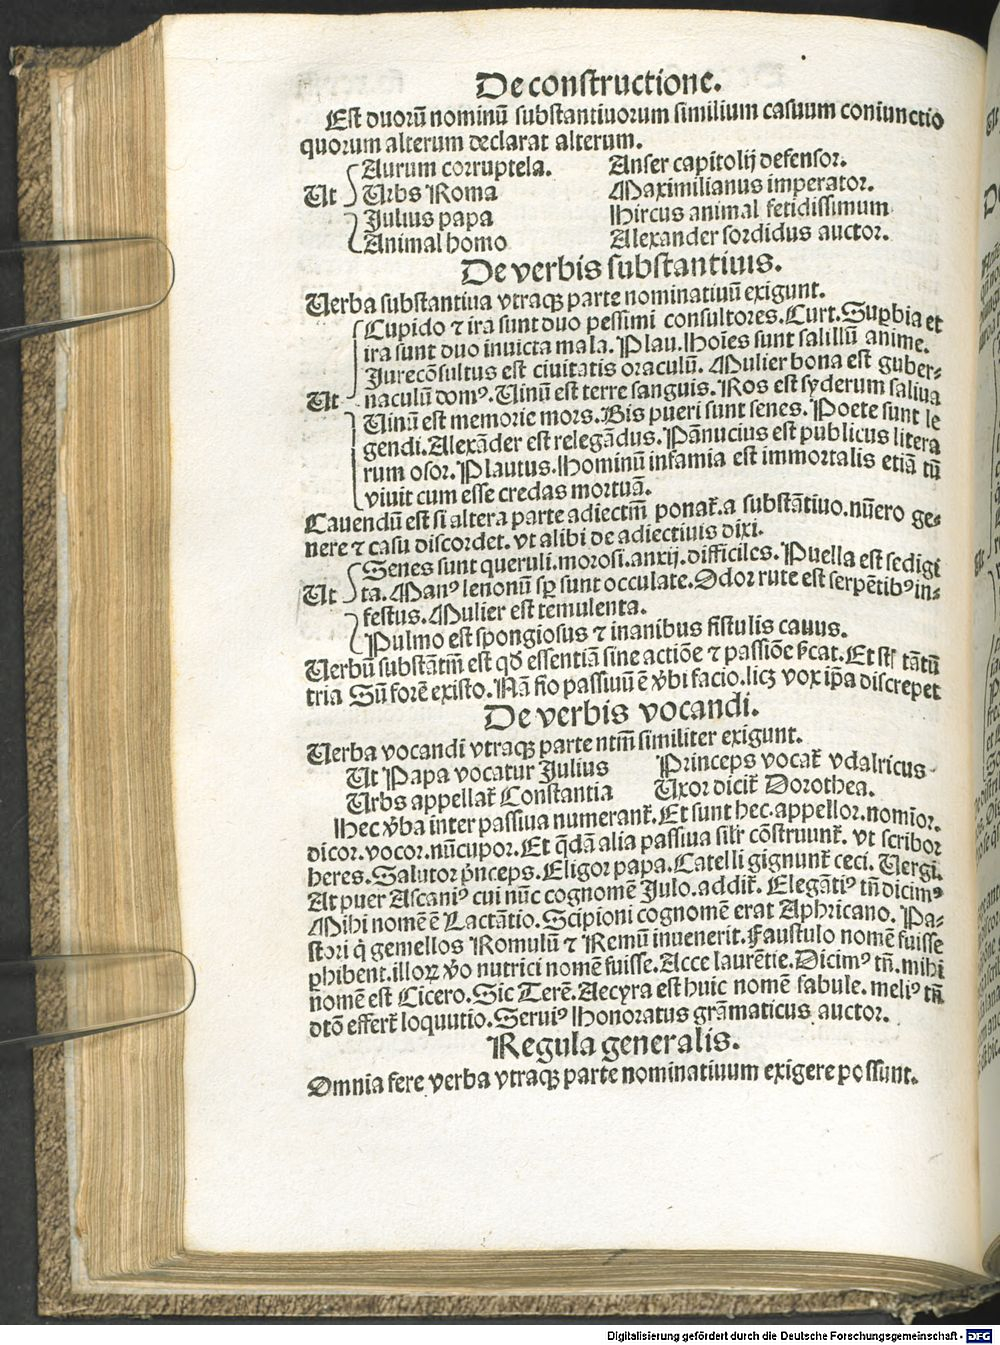 De constructione.
Est duorū nominū substantiuorum similium casuum coniunctio
quorum alterum declarat alterum.
Aurum corruptela. Anser capitolij defensor.
Ut Urbs Roma Maximilianus imperator.
Julius papa Hircus animal fetidissimum
Animal homo Alexander sordidus auctor.
De verbis substantiuis.
Uerba substantiua vtraqꝫ parte nominatiuū exigunt.
Cupido ⁊ ira sunt duo pessimi consultores. Curt. Suꝑbia et
ira sunt duo inuicta mala. Plau. Hoīes sunt salillū anime.
Jurecōsultus est ciuitatis oraculū. Mulier bona est guber⸗
Ut naculū domꝰ. Uinū est terre sanguis. Ros est syderum saliua
Uinū est memorie mors. Bis pueri sunt senes. Poete sunt le
gendi. Alexāder est relegādus. Pānucius est publicus litera
rum osor. Plautus. Hominū infamia est immortalis etiā tū
viuit cum esse credas mortuā.
Cauendū est si altera parte adiectm̄ ponat̄. a substātiuo. nūero ge⸗
nere ⁊ casu discordet. vt alibi de adiectiuis dixi.
Senes sunt queruli. morosi. anxij. difficiles. Puella est sedigi
Ut ta. Manꝰ lenonū sꝑ sunt occulate. Odor rute est serpētibꝰ in⸗
festus. Mulier est temulenta.
Pulmo est spongiosus ⁊ inanibus fistulis cauus.
Uerbū substātm̄ est qđ essentiā sine actiōe ⁊ passiōe s̄cat. Et st̄ tātū
tria Sū forē existo. Nā fio passiuū ē v̄bi facio. licꝫ vox ip̄a discrepet
De verbis vocandi.
Uerba vocandi vtraqꝫ parte ntm̄ similiter exigunt.
Ut Papa vocatur Julius Princeps vocat̄ vdalricus
Urbs appellat̄ Constantia Uxor dicit̄ Dorothea.
Hec v̄ba inter passiua numerant̄. Et sunt hec. appellor. nomīor.
dicor. vocor. nūcupor. Et q̄dā alia passiua silr̄ cōstruunt̄. vt scribor
heres. Salutor p̄nceps. Eligor papa. Catelli gignunt̄ ceci. Uergi.
At puer Ascaniꝰ cui nūc cognomē Julo. addit̄. Elegātiꝰ tn̄ dicimꝰ
Mihi nomē ē Lactātio. Scipioni cognomē erat Aphricano. Pa⸗
stori q̇ gemellos Romulū ⁊ Remū inuenerit. Faustulo nomē fuisse
ꝑhibent. illoꝝ v̄o nutrici nomē fuisse. Acce laurētie. Dicimꝰ tn̄. mihi
nomē est Cicero. Sic Terē. Aecyra est huic nomē fabule. meliꝰ tn̄
dtō effert̄ loquutio. Seruiꝰ Honoratus grāmaticus auctor.
Regula generalis.
Omnia fere verba vtraqꝫ parte nominatiuum exigere possunt.
Digitalisierung gefördert durch die Deutsche Forschungsgemeinschaft - DFG